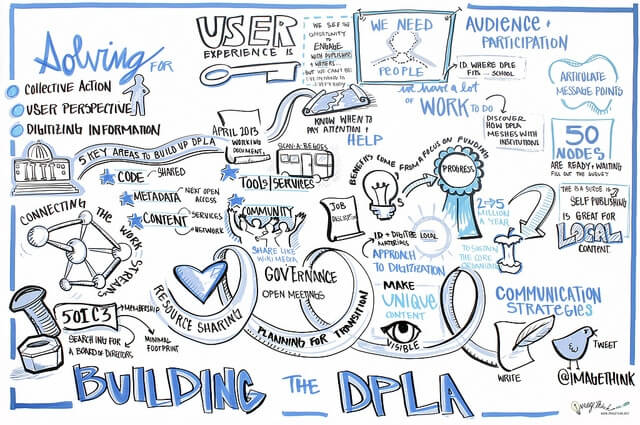 Solving FOR
COLLECTIVE ACTION
USER PERSPECTIVE
DIGITIZING INFORMATION
USER
EXPERIENCE IS
WE SEE THE
OPPORTUNITY TO
ENGAGE
WITH PUBLISHERS
+ WRITERS...
BUT WE CAN'T BE
EVERYTHING TO
EVERYBODY
KNOW WHEN TO
PAY ATTENTION +
HELP
WE NEED
PEOPLE
we have a lot
of WORK TO DO
AUDIENCE +
PARTICIPATION
ID WHERE DPLA
FITS ... SCHOOL
DISCOVER
HOW DPLA
MESHES WITH
INSTITUTIONS
ARTICULATE
MESSAGE POINTS
50
NODES
ARE READY + WAITING
FILL OUT THE SURVEY
SELF PUBLISHING
IS GREAT FOR
LOCAL
CONTENT
5 KEY AREAS TO BUILD UP DPLA
APRIL 2013
WORKING
DOCUMENT
SCAN-A-BEGOES
CODE - SHARED
METADATA - NEXT OPEN
ACCESS
CONTENT - SERVICES
- NETWORK
TOOLS/SERVICES
COMMUNITY
SHARE LIKE
WIKIMEDIA
JOB
DESCRIPTION
BENEFITS COME FROM A FOCUS ON FUNDING
PROGRESS
2→5
MILLION
A YEAR
TO SUSTAIN
THE CORE
ORGANIZATION
CONNECTING THE WORK STREAMS
ID + DIGITIZE LOCAL
MATERIALS
APPROACH
TO DIGITIZATION
RESOURCE SHARING
GOVERNANCE
OPEN MEETINGS
PLANNING FOR TRANSITION
MAKE
UNIQUE
CONTENT
VISIBLE
COMMUNICATION
STRATEGIES
WRITE
TWEET
@IMAGETHINK
501C3 - MEMBERSHIP
SEARCHING FOR
A BOARD OF DIRECTORS
MINIMAL
FOOTPRINT
BUILDING THE DPLA